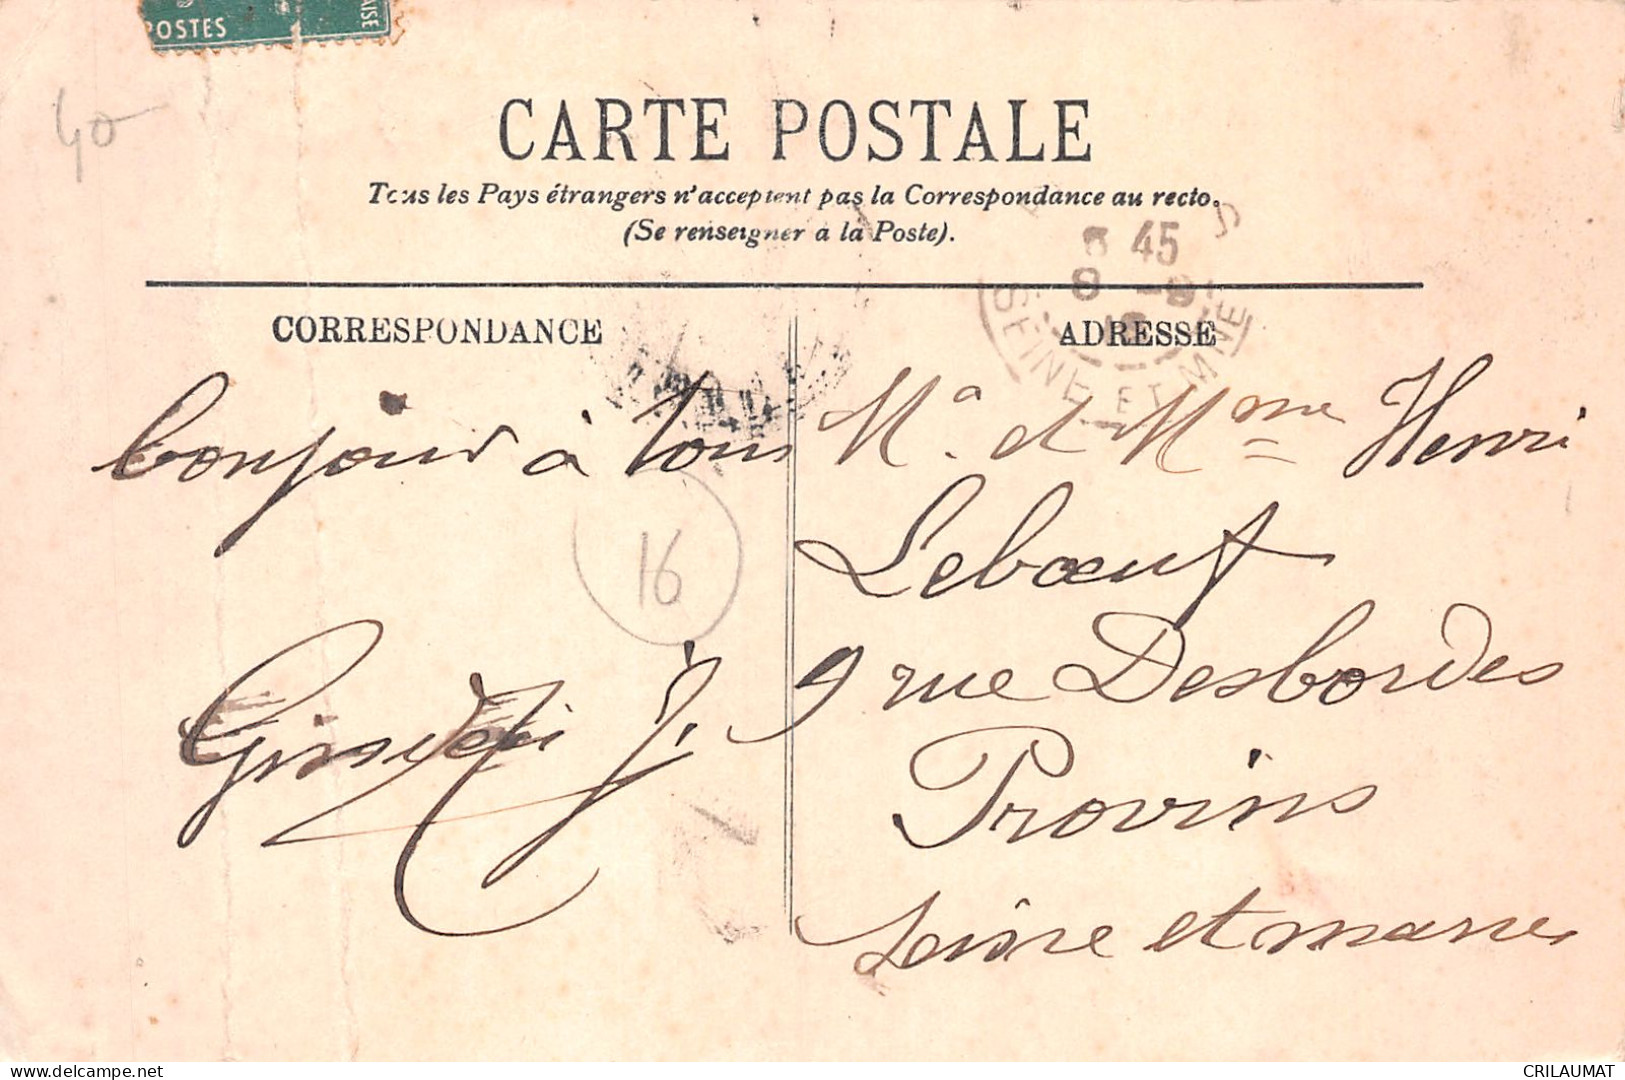 POSTES
AISE
40
CARTE POSTALE
Tous les Pays étrangers n'acceptent pas la Correspondance au recto.
(Se renseigner à la Poste).
45
SEINE ET MNE
CORRESPONDANCE
ADRESSE
bonjour à tous
16
Mr. et Mme Henri
Lebœuf
9 rue Desbordes
Provins
Seine et marne
delcampe.net
CRILAUMAT